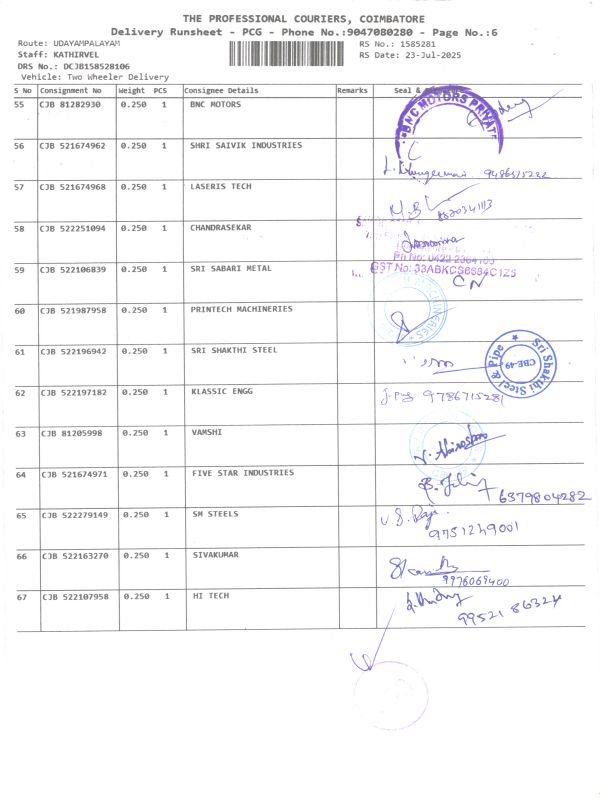 THE PROFESSIONAL COURIERS, COIMBATORE
Delivery Runsheet - PCG - Phone No.:9047080280 - Page No.:6
Route: UDAYAMPALAYAM
RS No.: 1585281
Staff: KATHIRVEL
RS Date: 23-Jul-2025
DRS No.: DCJB158528106
Vehicle: Two Wheeler Delivery
S No Consignment No Weight PCS Consignee Details Remarks Seal &
55 CJB 81282930 0.250 1 BNC MOTORS
BNC MOTORS PRIVATE
56 CJB 521674962 0.250 1 SHRI SAIVIK INDUSTRIES
9486515222
57 CJB 521674968 0.250 1 LASERIS TECH
58 CJB 522251094 0.250 1 CHANDRASEKAR
Ph No: 0422 2364103
59 CJB 522106839 0.250 1 SRI SABARI METAL
GST No: 33ABKCS6684C1Z5
CN
60 CJB 521987958 0.250 1 PRINTECH MACHINERIES
MACHINERIES
61 CJB 522196942 0.250 1 SRI SHAKTHI STEEL
Sri Shakthi Steel & Pipe
CBE-49
62 CJB 522197182 0.250 1 KLASSIC ENGG
9786715281
63 CJB 81205998 0.250 1 VAMSHI
64 CJB 521674971 0.250 1 FIVE STAR INDUSTRIES
6379804282
65 CJB 522279149 0.250 1 SM STEELS
9751249001
66 CJB 522163270 0.250 1 SIVAKUMAR
9976069400
67 CJB 522107958 0.250 1 HI TECH
99521 86324